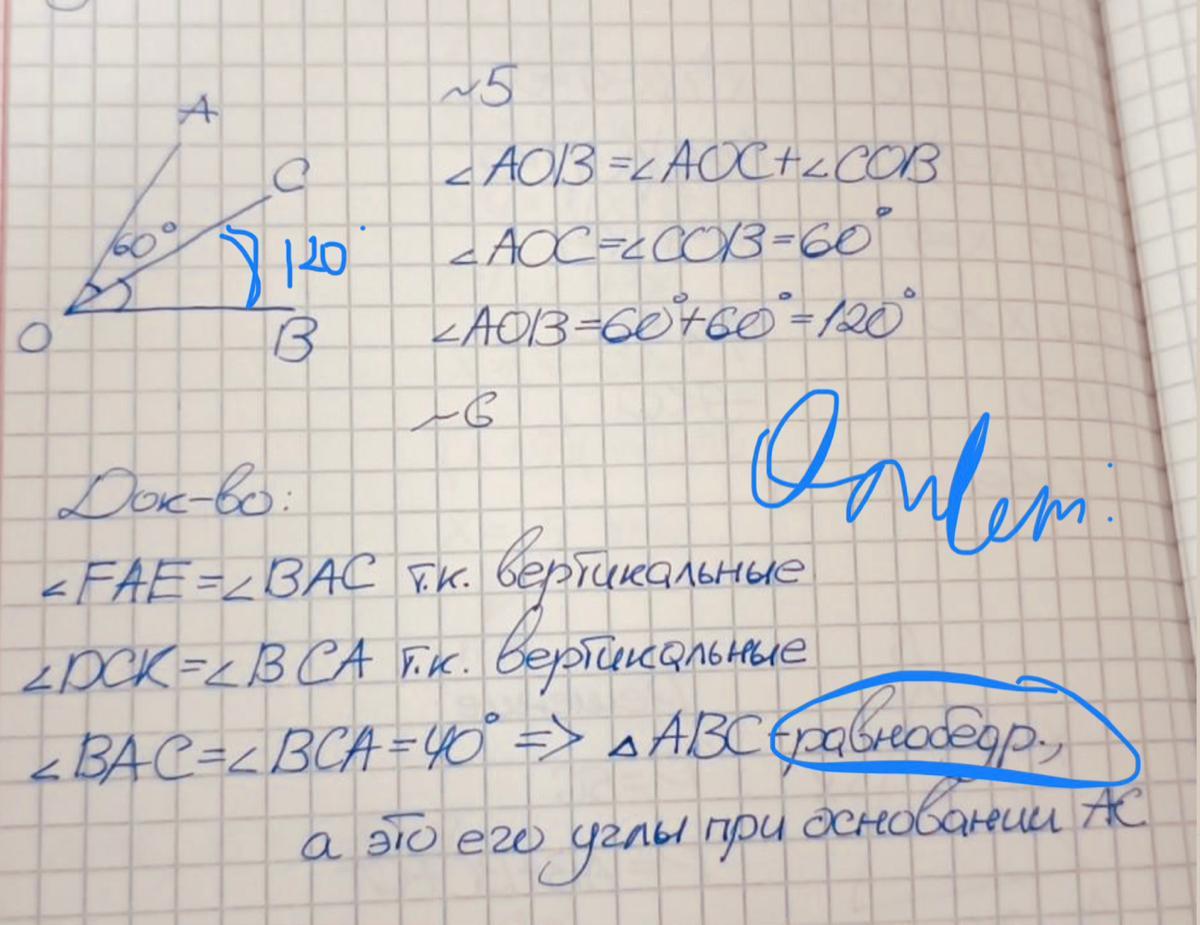 A
C
60°
120°
O
B
~5
∠AOB=∠AOC+∠COB
∠AOC=∠COB=60°
∠AOB=60°+60°=120°
~6
Ответ:
Док-во:
∠FAE=∠BAC т.к. вертикальные
∠DCK=∠BCA т.к. вертикальные
∠BAC=∠BCA=40° => △ABC-равнобедр.,
а это его углы при основании AC